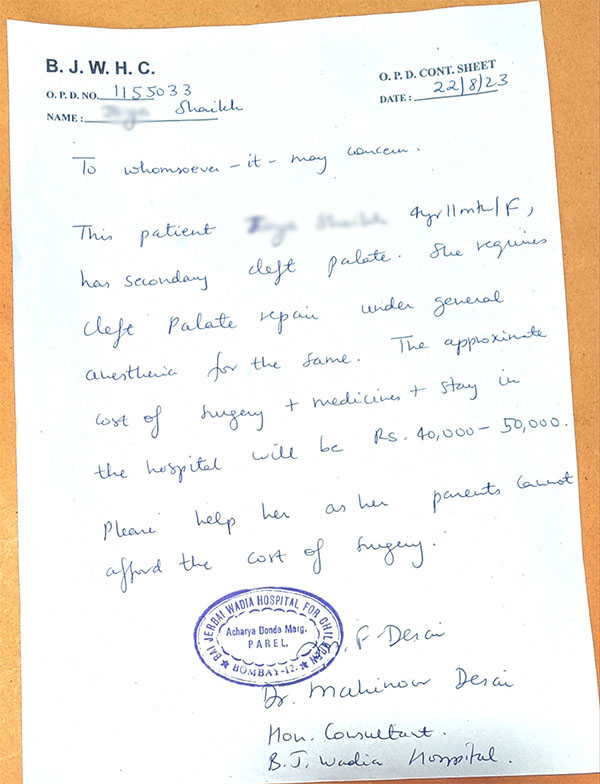 B. J. W. H. C.
O. P. D. CONT. SHEET
O. P. D. NO. 1155033
DATE : 22/8/23
NAME : Shaikh
To whomsoever - it - may concern.
This patient 4yr 11mth/F,
has secondary cleft palate. She requires
cleft Palate repair under general
anesthesia for the same. The approximate
cost of surgery + medicines + stay in
the hospital will be Rs. 40,000 - 50,000.
Please help her as her parents cannot
afford the cost of surgery.
BAI JERBAI WADIA HOSPITAL FOR CHILDREN
Acharya Donde Marg.
PAREL
BOMBAY-12.
F Desai
Dr. Mahinoor Desai
Hon. Consultant.
B. J. Wadia Hospital.